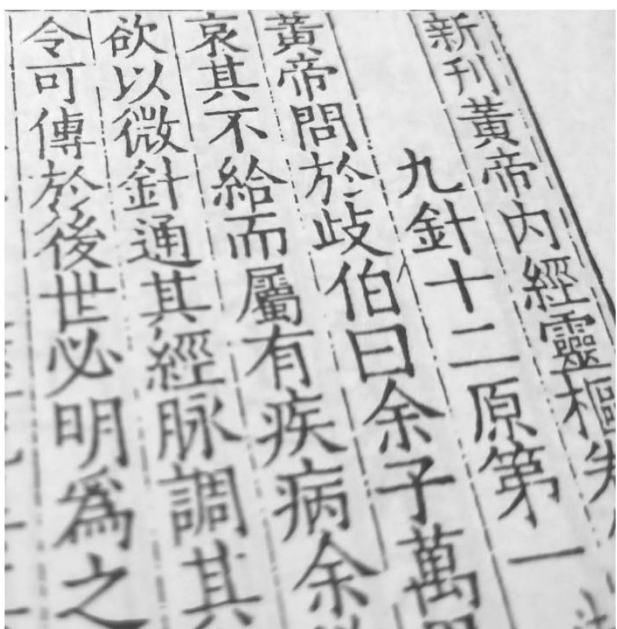 新刊黃帝內經靈樞
九針十二原第一
黃帝問於歧伯曰余子萬
哀其不給而屬有疾病余
欲以微針通其經脉調其
令可傳於後世必明爲之